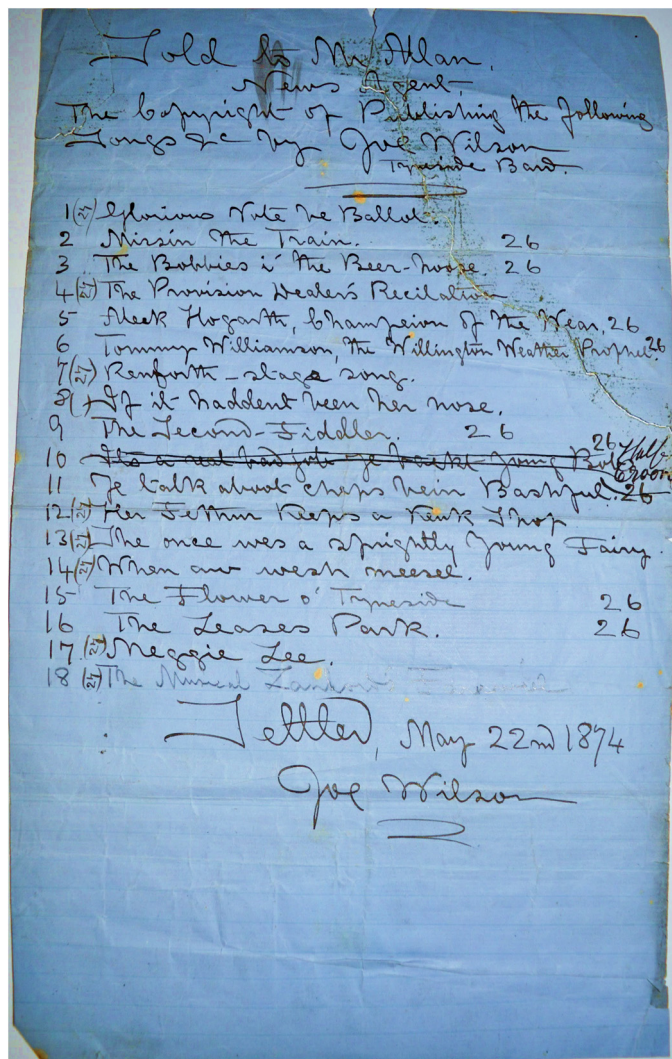 Sold to Mr Allan,
News Agent,
The Copyright of Publishing the following
Songs &c by Joe Wilson
Tyneside Bard.
1 (27) Glorious Vote be Ballot.
2 Missin the Train. 26
3 The Bobbies i' the Beer-hoose. 26
4 (27) The Provision Dealer's Recitation
5 Aleck Hogarth, Champeion of the Wear. 26
6 Tommy Williamson, the Willington Weather Prophet. 26
7 (27) Renforth - stage song.
8 ( ) If it haddent been her nose.
9 The Second-Fiddler. 26
10 It's a real bad job ye backt young Bob 26 Half Croon
11 Ye talk aboot chaps bein Bashful. 26
12 (27) Her Fethur Keeps a Keuk Shop
13 (27) She once was a sprightly young Fairy
14 (27) When aw wesh meesel.
15 The Flower o' Tyneside 26
16 The Leases Park. 26
17 (27) Meggie Lee.
18 (27) The Musical
Settled, May 22nd 1874
Joe Wilson